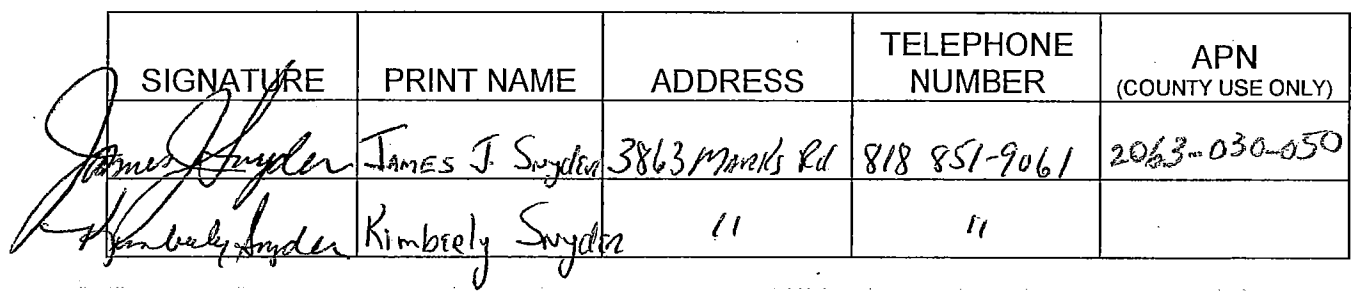 SIGNATURE PRINT NAME ADDRESS TELEPHONE NUMBER APN (COUNTY USE ONLY)
James J Snyder James J. Snyder 3863 Marks Rd 818 851-9061 2063-030-050
Kimberly Snyder Kimberly Snyder " "